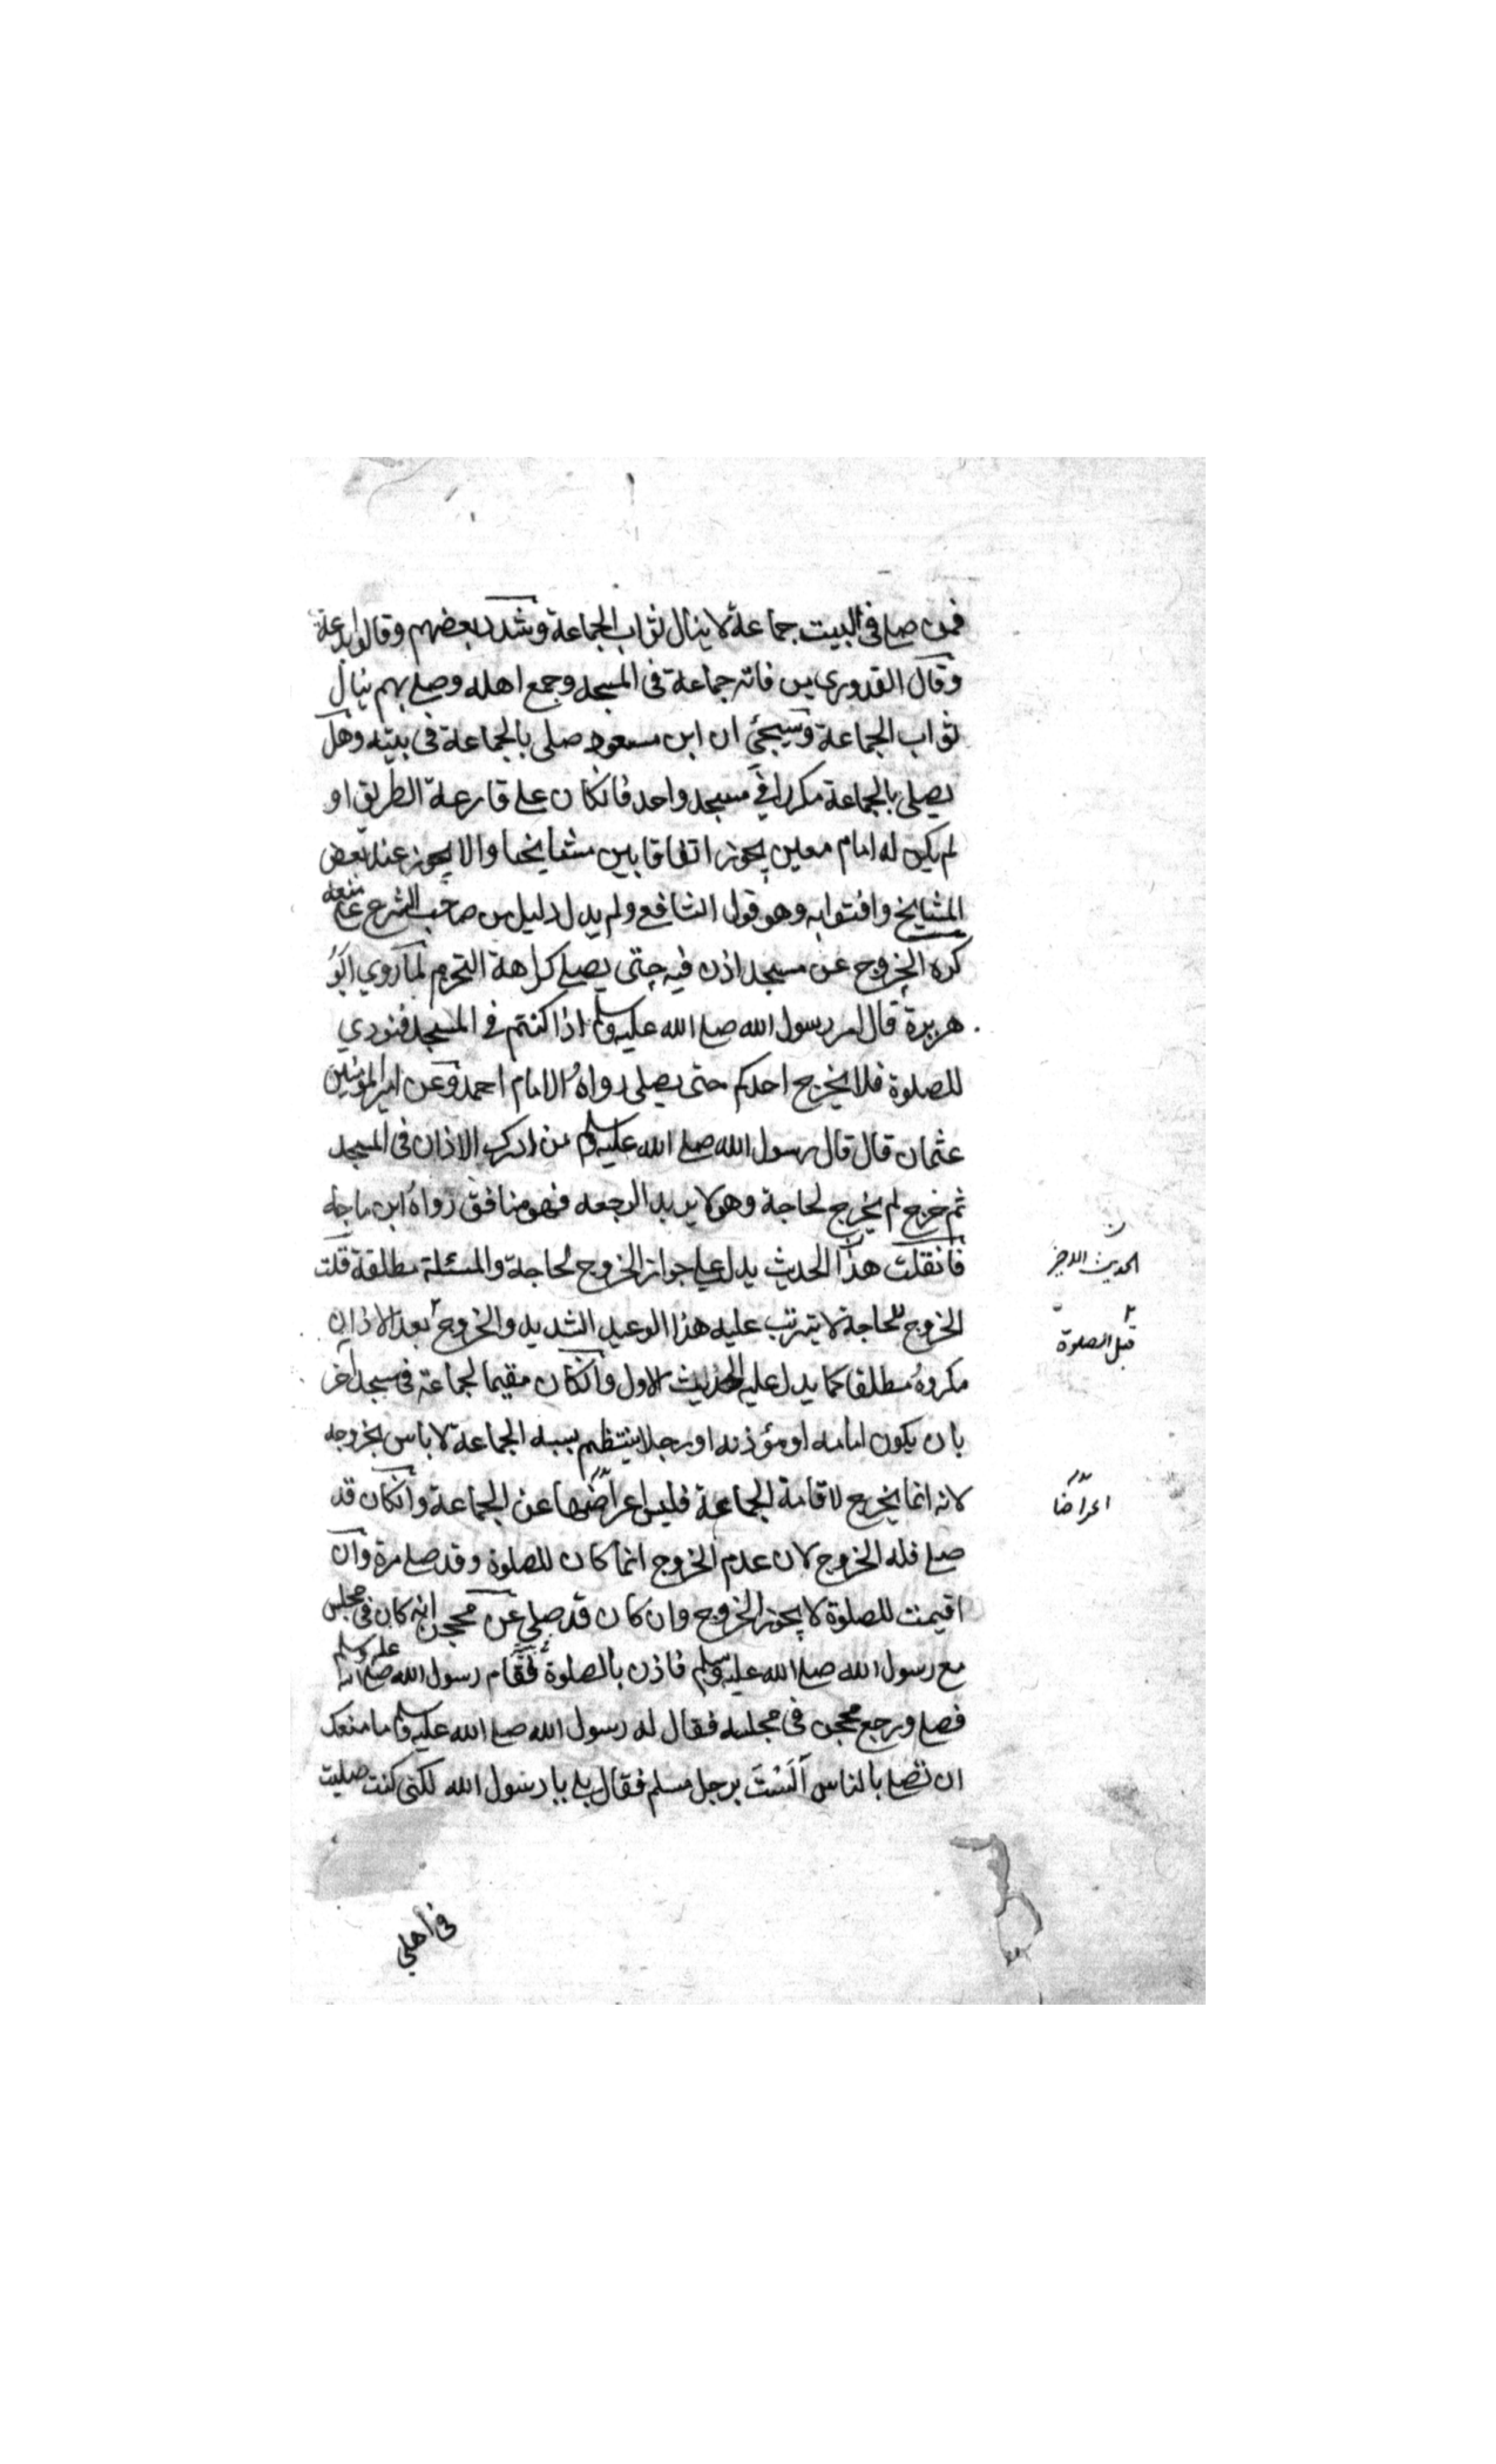 فمن صلى فى البيت جماعة لا ينال ثواب الجماعة وشدد بعضهم وقالوا بدعة
وقال القدورى من فاته جماعة فى المسجد وجمع اهله وصلى بهم ينال
ثواب الجماعة وسيجئ ان ابن مسعود صلى بالجماعة فى بيته وهل
يصلى بالجماعة مكررا فى مسجد واحد فانكان على قارعة الطريق او
لم يكن له امام معين يجوز اتفاقا بين مشايخنا والا يجوز عند بعض
المشايخ وافتوا به وهو قول الشافع ولم يدل دليل من صاحب الشرع على منعه
كره الخروج عن مسجد اذن فيه حتى يصلى كراهة التحريم لما روي ابو
هريرة قال امر رسول الله صلى الله عليه وسلم اذا كنتم فى المسجد فنودي
للصلوة فلا يخرج احدكم حتى يصلى رواه الامام احمد وعن امير المؤمنين
عثمان قال قال رسول الله صلى الله عليه وسلم من ادرك الاذان فى المسجد
ثم خرج لم يخرج لحاجة وهو لا يريد الرجعه فهو منافق رواه ابن ماجه
فانقلت هذا الحديث يدل على جواز الخروج لحاجة والمسئلة مطلقة قلت
الحديث الاخر
الخروج للحاجة لا يترتب عليه هذا الوعيد الشديد والخروج بعد الاذان
قبل الصلوة
مكروه مطلقا كما يدل عليه الحديث الاول وانكان مقيما لجماعة فى مسجد آخر
بان يكون امامه او مؤذنه او رجلا ينتظم بسببه الجماعة لا باس بخروجه
لانه انما يخرج لاقامة الجماعة فليس اعراضها عن الجماعة وانكان قد
اعراضا
صلى فله الخروج لان عدم الخروج انما كان للصلوة وقد صلى مرة وان
اقيمت للصلوة لا يجوز الخروج وان كان قد صلى عن محجن انه كان فى مجلس
مع رسول الله صلى الله عليه وسلم فاذن بالصلوة فقام رسول الله صلى الله عليه وسلم
فصلى ورجع محجن فى مجلسه فقال له رسول الله صلى الله عليه وسلم ما منعك
ان تصلى بالناس اَلَسْتَ برجل مسلم فقال بلى يا رسول الله لكنى كنت صليت
فى اهلي